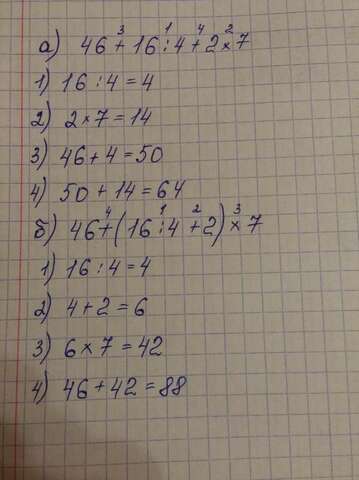 а) 46 + 16 : 4 + 2 × 7
3 1 4 2
1) 16 : 4 = 4
2) 2 × 7 = 14
3) 46 + 4 = 50
4) 50 + 14 = 64
б) 46 + (16 : 4 + 2) × 7
4 1 2 3
1) 16 : 4 = 4
2) 4 + 2 = 6
3) 6 × 7 = 42
4) 46 + 42 = 88